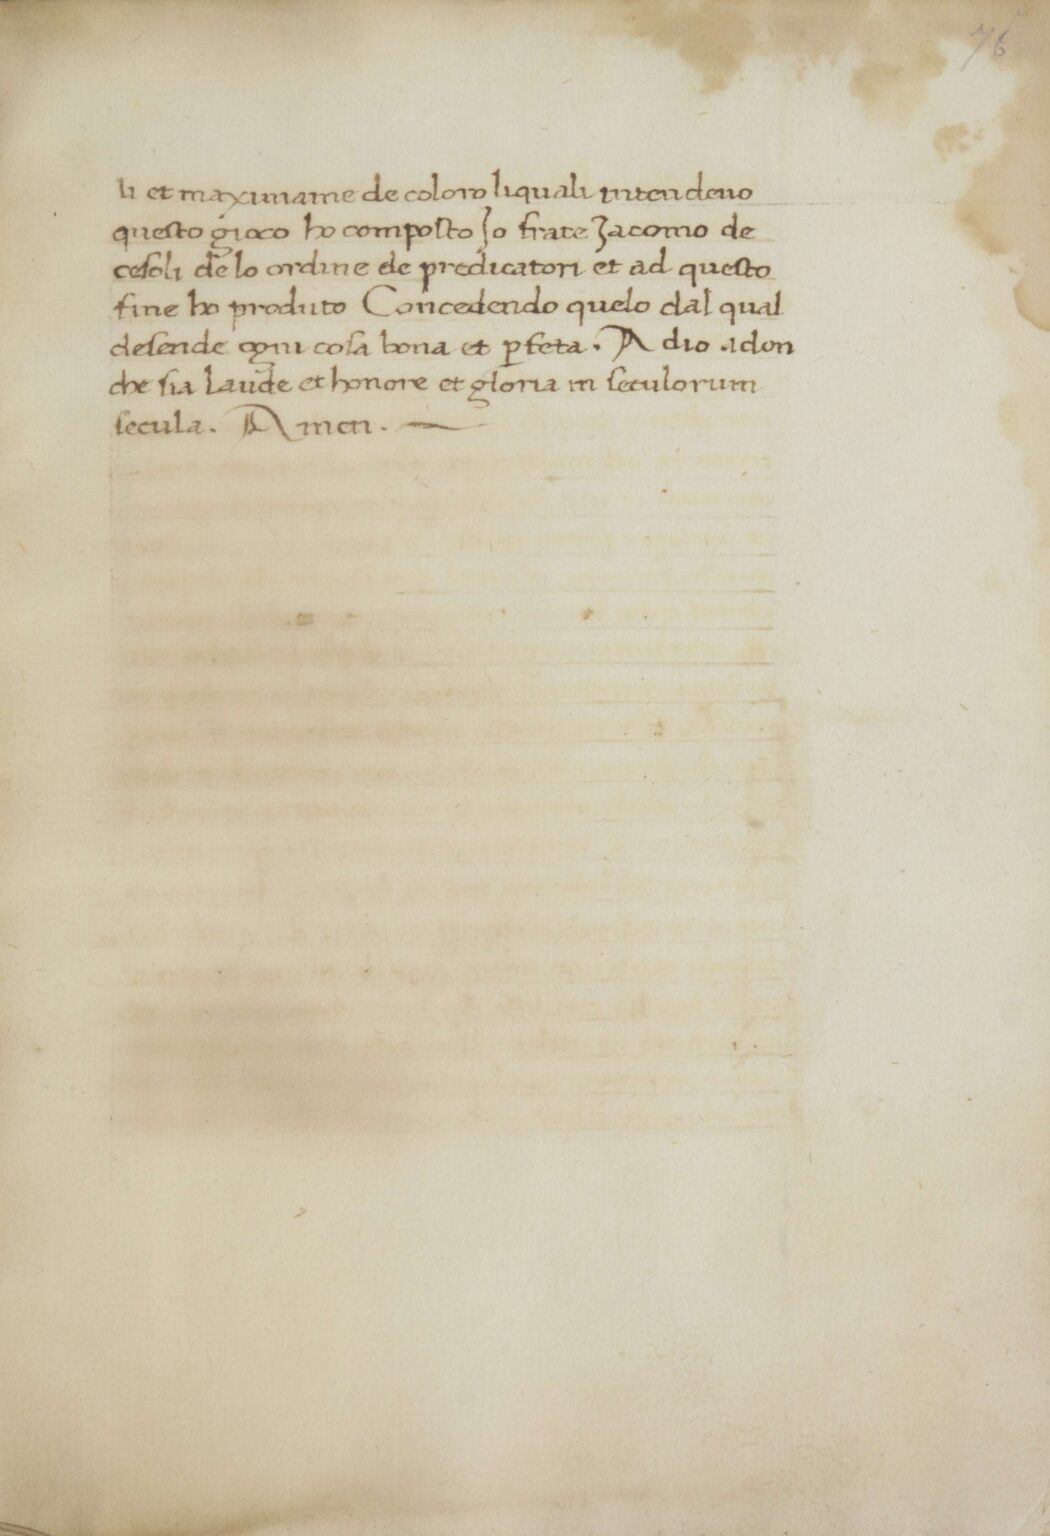 76
li et maximame de coloro liquali intendeno
questo gioco ho composto Jo frate Zacomo de
cesoli de lo ordine de predicatori et ad questo
fine ho produto Concedendo quelo dal qual
desende ogni cosa bona et ꝑfeta. A dio .idon
che sia laude et honore et gloria in seculorum
secula. Amen.